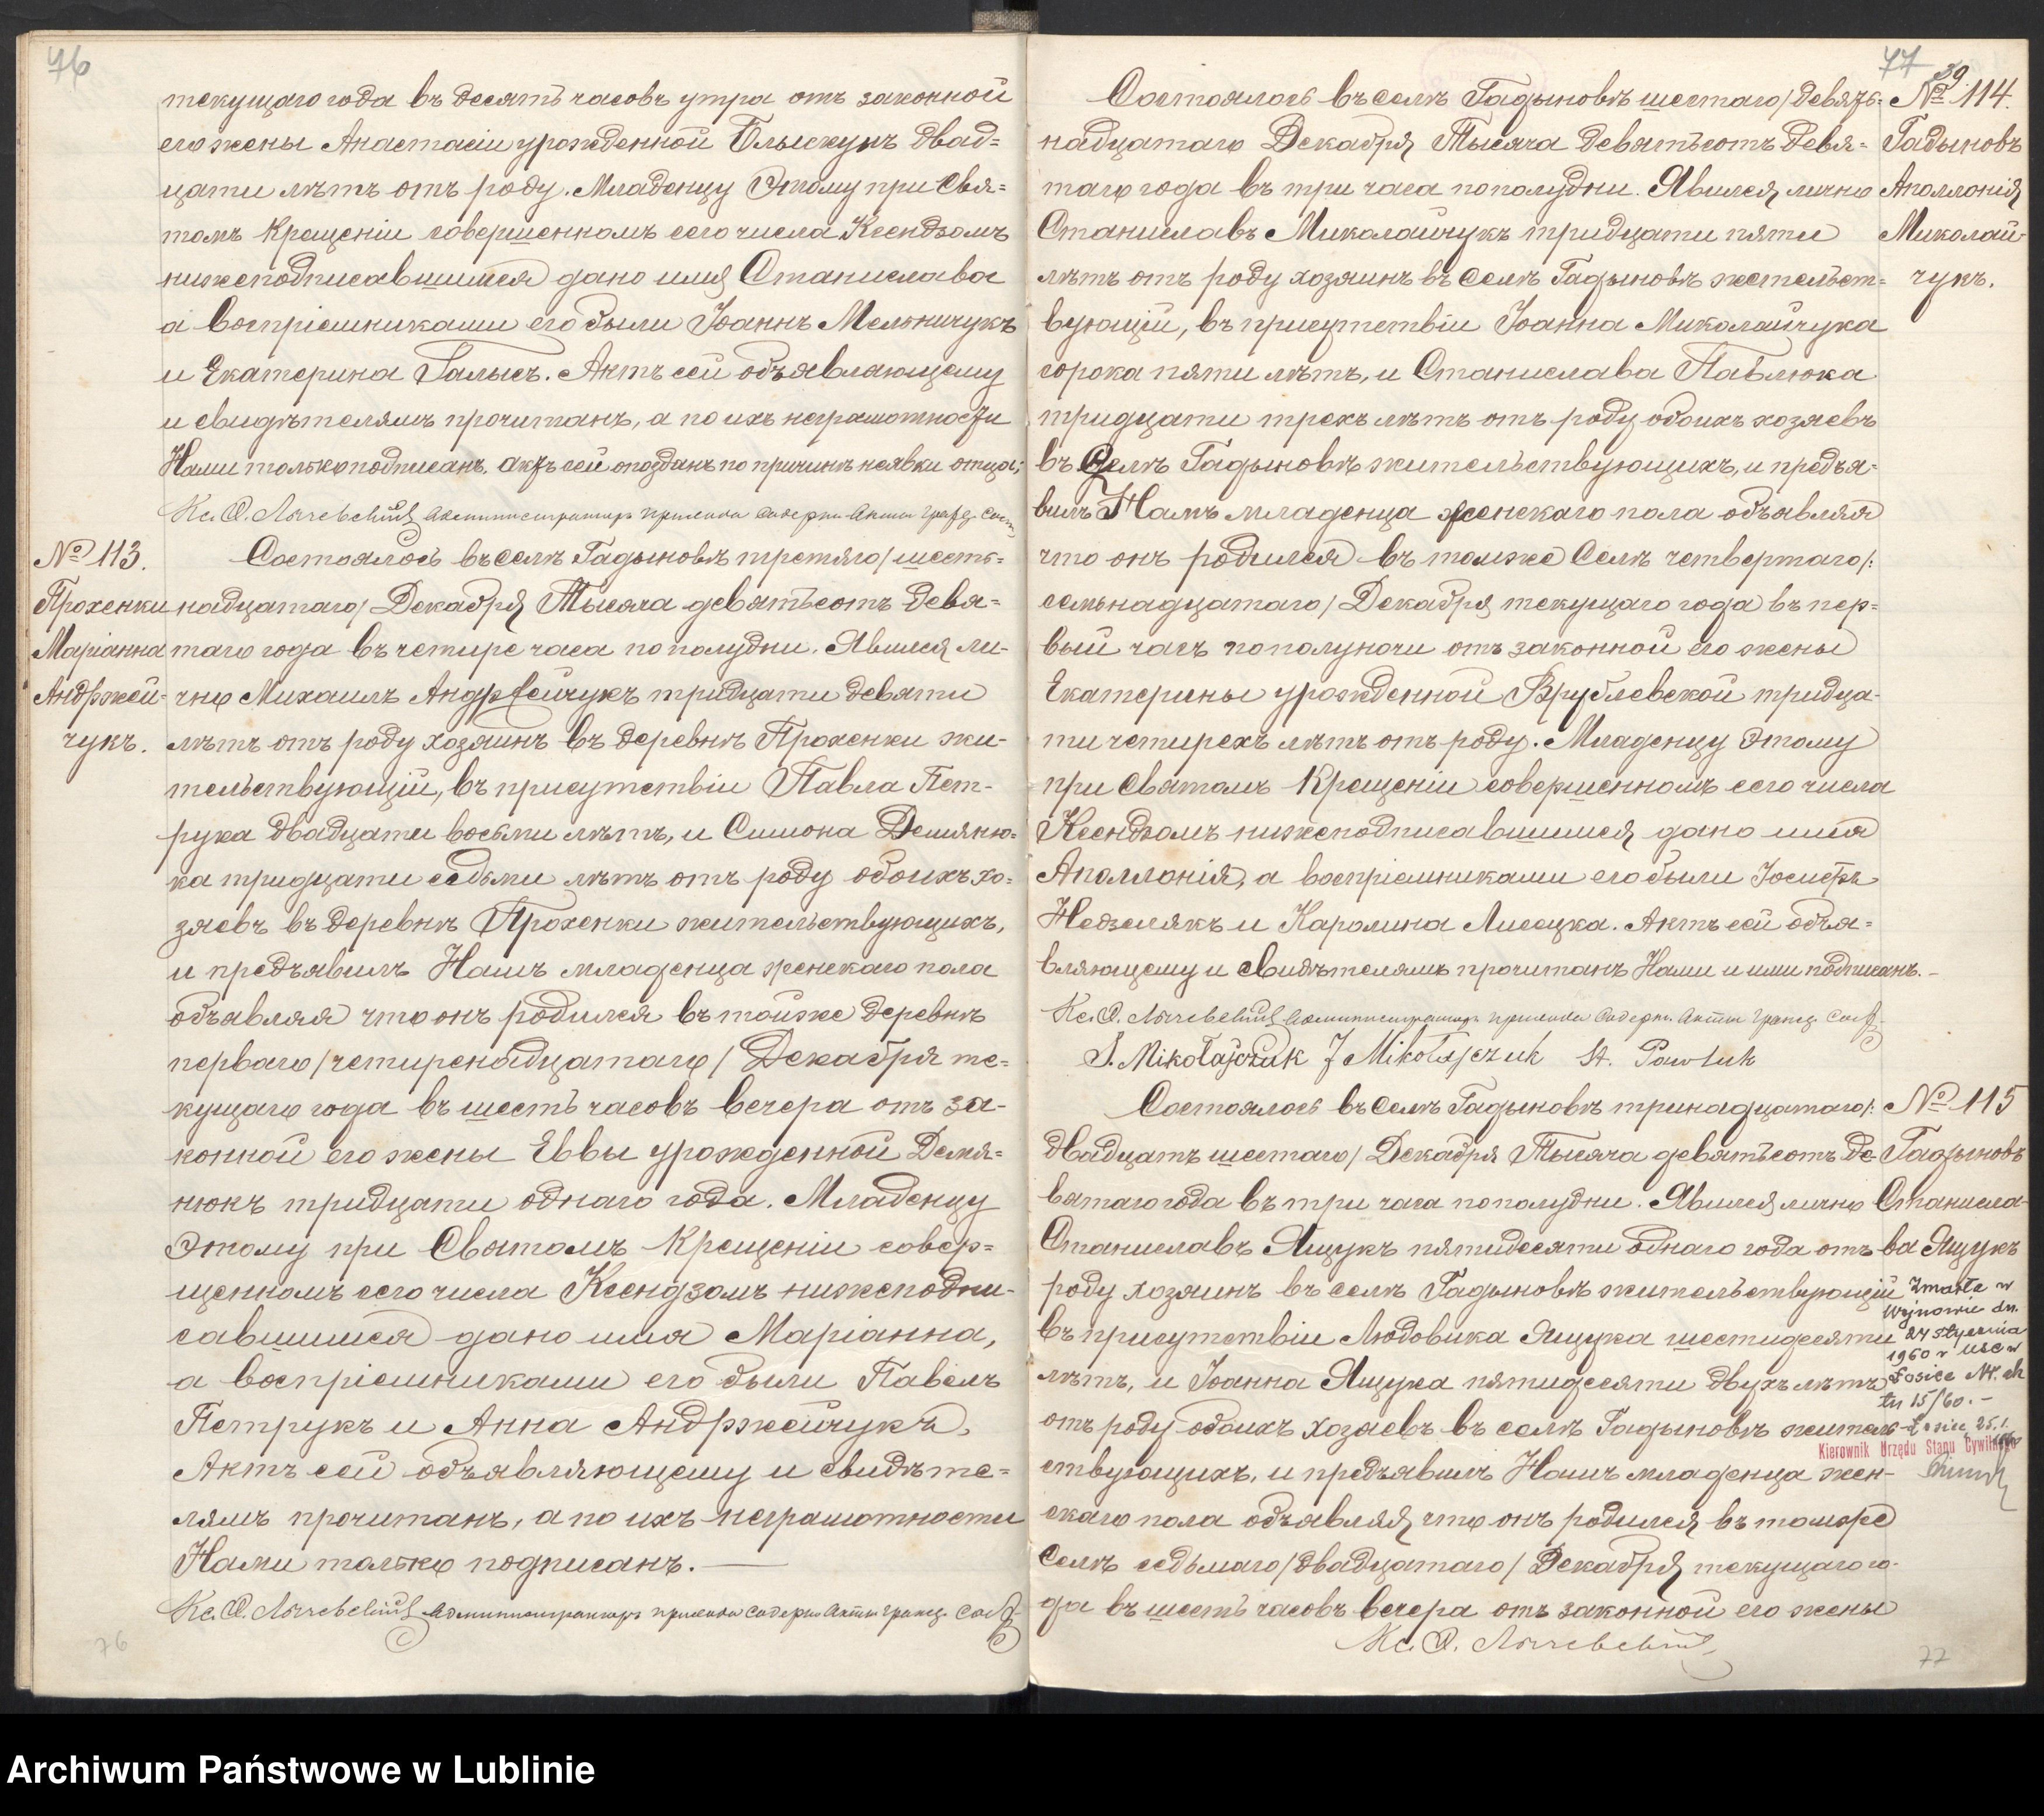 76
текущаго года въ десять часовъ утра отъ законной
его жены Анастасіи урожденной Блыскунъ двад=
цати лѣтъ отъ роду. Младенцу Этому при Свя=
томъ Крещеніи совершенномъ сего числа Ксендзомъ
нижеподписавшимся дано имя Станислава
а воспріемниками его были Іоаннъ Мельничукъ
и Екатерина Галысъ. Актъ сей объявляющему
и свидѣтелямъ прочитанъ, а по ихъ неграмотности
Нами только подписанъ. Актъ сей опозданъ по причинѣ неявки отца;
Кс. Администраторъ прихода Содерж. Акты Гражд. Сост.
№ 113.
Прохенки
Маріанна
Андржей-
чукъ.
Состоялось въ селѣ Гадыновѣ третяго/шест-
надцатаго/Декабря Тысяча девятьсотъ девя=
таго года въ четыре часа по полудни. Явился ли-
чно Михаилъ Андржейчукъ тридцати девяти
лѣтъ отъ роду хозяинъ въ деревнѣ Прохенки жи-
тельствующій, въ присутствіи Павла Пет-
рука двадцати восьми лѣтъ, и Симона Демяню-
ка тридцати седьми лѣтъ отъ роду обоихъ хо-
зяевъ въ деревнѣ Прохенки жительствующихъ,
и предъявилъ Намъ младенца женскаго пола
объявляя что онъ родился въ тойже деревнѣ
перваго/четыренадцатаго/Декабря те=
кущаго года въ шесть часовъ вечера отъ за-
конной его жены Еввы урожденной Демя=
нюкъ тридцати однаго года. Младенцу
Этому при Святомъ Крещеніи совер=
шенномъ сего числа Ксендзомъ нижеподпи-
савшимся дано имя Маріанна,
а воспріемниками его были Павелъ
Петрукъ и Анна Андржейчукъ.
Актъ сей объявляющему и свидѣте=
лямъ прочитанъ, а по ихъ неграмотности
Нами только подписанъ.
Кс. Администраторъ прихода содерж. Акты Гражд. Сост.
76
77
39
№ 114.
Гадыновъ
Аполлонія
Миколай-
чукъ.
Состоялось въ селѣ Гадыновѣ шестаго/девят-
надцатаго Декабря Тысяча девятьсотъ девя=
таго года въ три часа пополудни. Явился лично
Станиславъ Миколайчукъ тридцати пяти
лѣтъ отъ роду хозяинъ въ селѣ Гадыновѣ жительст=
вующій, въ присутствіи Іоанна Миколайчука
сорока пяти лѣтъ, и Станислава Павлюка
тридцати трехъ лѣтъ отъ роду обоихъ хозяевъ
въ Селѣ Гадыновѣ жительствующихъ, и предъя=
вилъ Намъ младенца женскаго пола объявляя
что онъ родился въ томже Селѣ четвертаго/:
семьнадцатаго/Декабря текущаго года въ пер=
вый часъ пополуночи отъ законной его жены
Екатерины урожденной Врублевской тридца-
ти четирехъ лѣтъ отъ роду. Младенцу Этому
при Святомъ Крещеніи совершенномъ сего числа
Ксендзомъ нижеподписавшимся дано имя
Аполлонія, а воспріемниками его были Іосифъ
Недзелякъ и Каролина Лисецка. Актъ сей объя=
вляющему и свидѣтелямъ прочитанъ Нами и ими подписанъ.-
Кс. Администраторъ прихода Содерж. Акты Гражд. Сост.
S. Mikołajczuk J Mikołajczuk St. Pawluk
№ 115
Гадыновъ
Станисла-
ва Ящукъ
Zmarła w
Wojnowie dn.
24 stycznia
1960 r USC w
Łosice Nr. ak
tu 15/60.-
Łosice 25.1.
Kierownik Urzędu Stanu Cywilnego
Состоялось въ Селѣ Гадыновѣ тринадцатаго/:
двадцать шестаго/Декабря Тысяча девятьсотъ де-
вятаго года въ три часа пополудни. Явился лично
Станиславъ Ящукъ пятидесяти однаго года отъ
роду хозяинъ въ селѣ Гадыновѣ жительствующій
въ присутствіи Людовика Ящука шестидесяти
лѣтъ, и Іоанна Ящука пятидесяти двухъ лѣтъ
отъ роду обоихъ хозяевъ въ селѣ Гадыновѣ житель-
ствующихъ, и предъявилъ Намъ младенца жен-
скаго пола объявляя что онъ родился въ томже
Селѣ седьмаго/двадцатаго/Декабря текущаго го-
да въ шесть часовъ вечера отъ законной его жены
77
Archiwum Państwowe w Lublinie